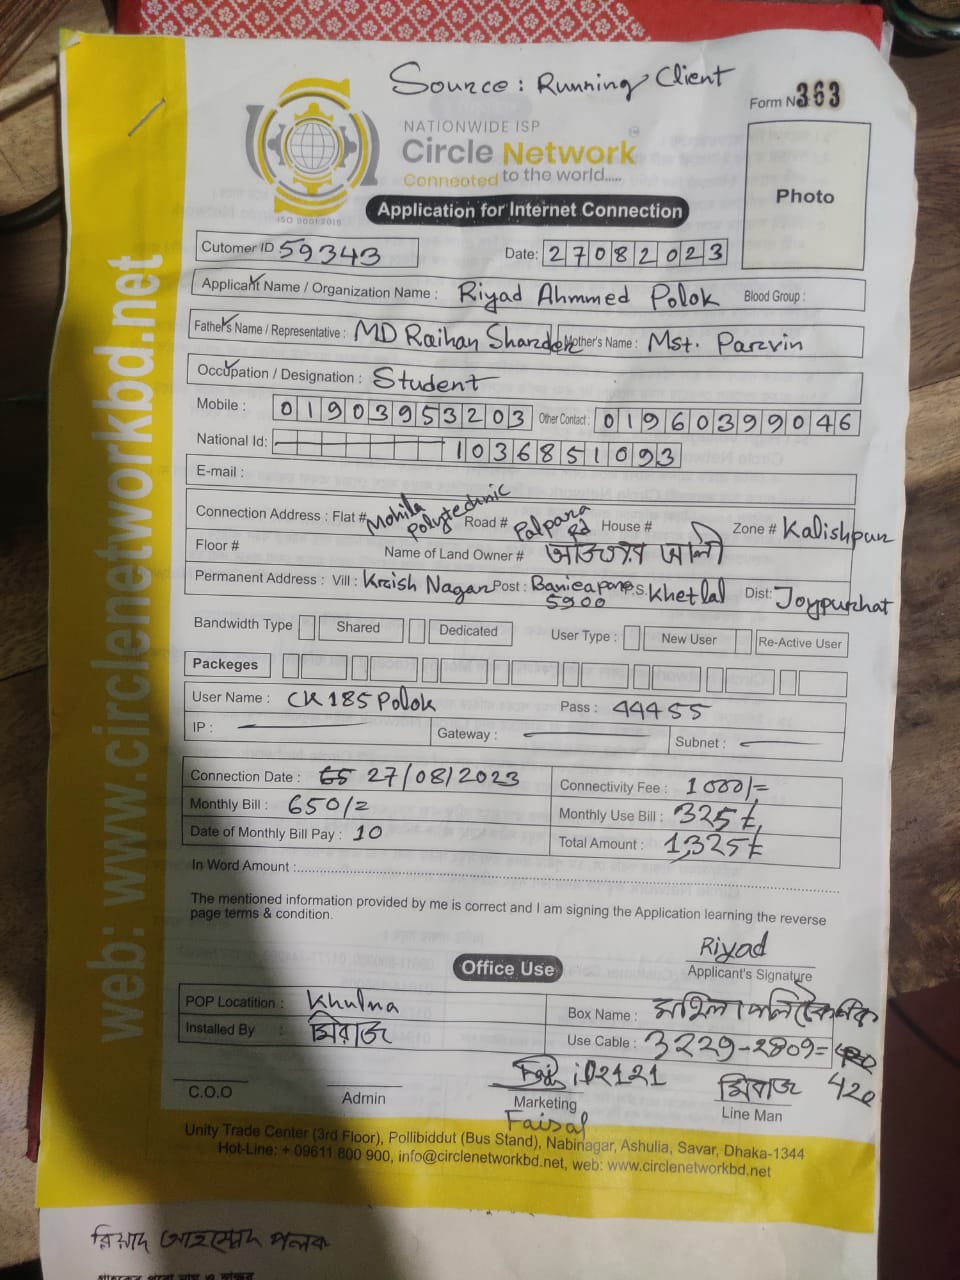 Source: Running Client
Form No 363
NATIONWIDE ISP
Circle Network
Connected to the world.....
ISO 9001:2015
Application for Internet Connection
Photo
Cutomer ID 59343
Date: 27082023
Applicant Name / Organization Name : Riyad Ahmmed Polok Blood Group :
Father's Name / Representative : MD Raihan Mother's Name : Mst. Parvin
Occupation / Designation : Student
Mobile : 01903953203 Other Contact : 01960399046
National Id: 1036851093
E-mail :
Connection Address : Flat # Mohila Polytechnic Road # Palpara Rd House # Zone # Kalishpur
Floor # Name of Land Owner # আলী
Permanent Address : Vill : Kraish Nagar Post : 5900 P.S. Khetlal Dist: Joypurhat
Bandwidth Type Shared Dedicated User Type : New User Re-Active User
Packeges
User Name : CK185Polok Pass : 44455
IP : Gateway : Subnet :
Connection Date : 27/08/2023 Connectivity Fee : 1000/=
Monthly Bill : 650/= Monthly Use Bill : 325৳
Date of Monthly Bill Pay : 10 Total Amount : 1,325৳
In Word Amount :
The mentioned information provided by me is correct and I am signing the Application learning the reverse
page terms & condition.
Riyad
Applicant's Signature
Office Use
POP Locatition : Khulna Box Name : মহিলা পলিটেকনিক
Installed By : মিরাজ Use Cable : 3229-2809=
420
C.O.O Admin iD2121 Marketing মিরাজ Line Man
Faisal
Unity Trade Center (3rd Floor), Pollibiddut (Bus Stand), Nabinagar, Ashulia, Savar, Dhaka-1344
Hot-Line: + 09611 800 900, info@circlenetworkbd.net, web: www.circlenetworkbd.net
web: www.circlenetworkbd.net
রিয়াদ আহম্মেদ পলক